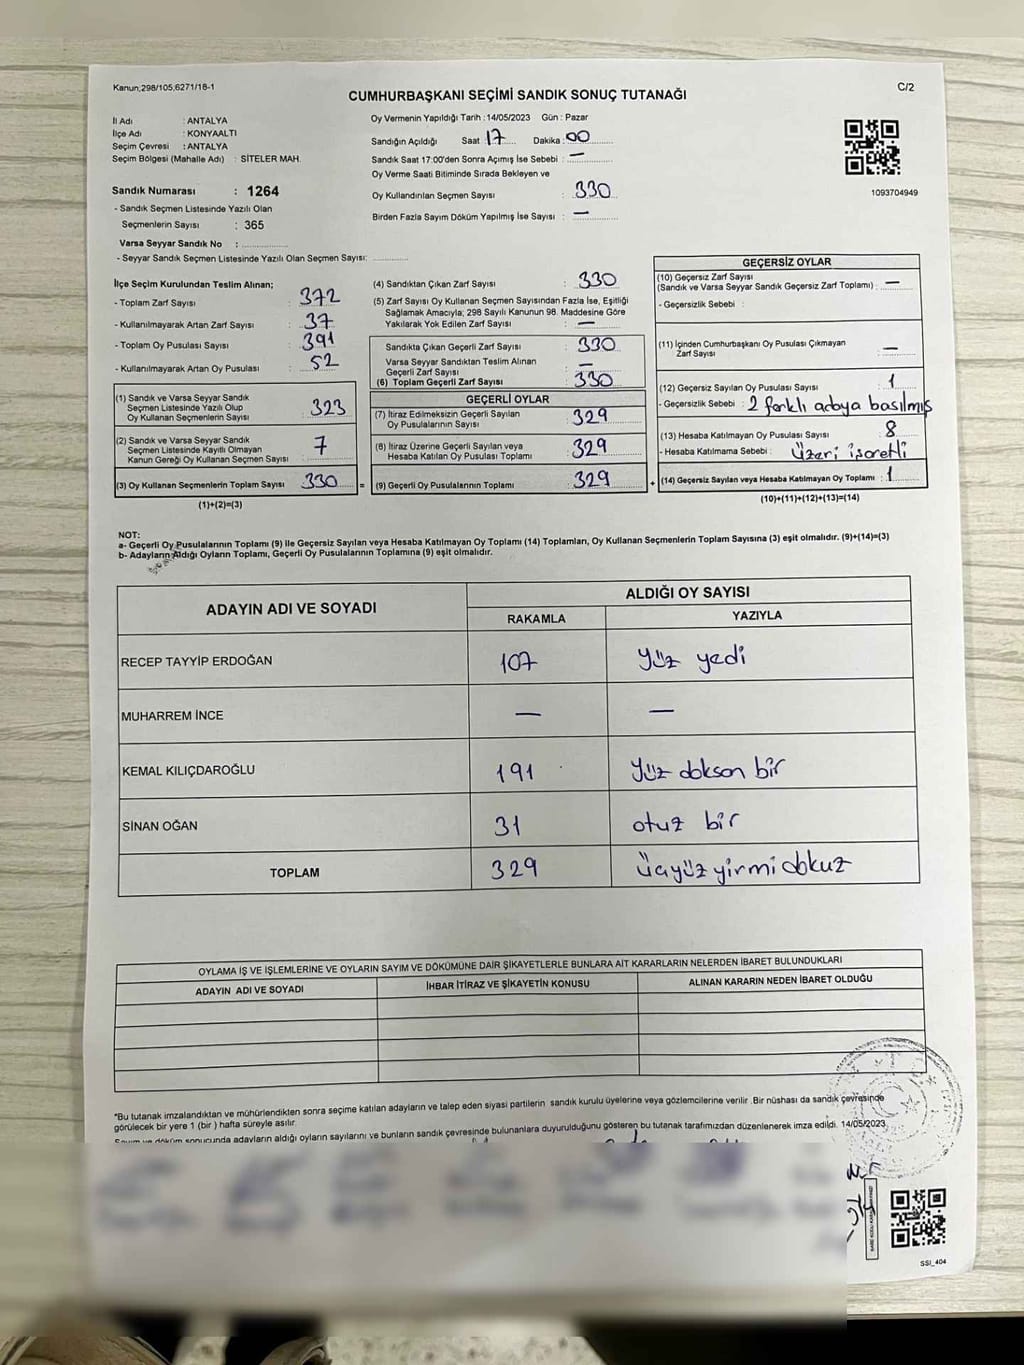 Kanun;298/105,6271/18-1
C/2
CUMHURBAŞKANI SEÇİMİ SANDIK SONUÇ TUTANAĞI
İl Adı : ANTALYA
İlçe Adı : KONYAALTI
Seçim Çevresi : ANTALYA
Seçim Bölgesi (Mahalle Adı) : SİTELER MAH.
Sandık Numarası : 1264
- Sandık Seçmen Listesinde Yazılı Olan
Seçmenlerin Sayısı : 365
Varsa Seyyar Sandık No :
- Seyyar Sandık Seçmen Listesinde Yazılı Olan Seçmen Sayısı:
Oy Vermenin Yapıldığı Tarih : 14/05/2023 Gün : Pazar
Sandığın Açıldığı Saat 17 Dakika : 00
Sandık Saat 17:00'den Sonra Açımış İse Sebebi : —
Oy Verme Saati Bitiminde Sırada Bekleyen ve
Oy Kullandırılan Seçmen Sayısı : 330
Birden Fazla Sayım Döküm Yapılmış İse Sayısı : —
1093704949
İlçe Seçim Kurulundan Teslim Alınan;
- Toplam Zarf Sayısı : 372
- Kullanılmayarak Artan Zarf Sayısı : 37
- Toplam Oy Pusulası Sayısı : 391
- Kullanılmayarak Artan Oy Pusulası : 52
(1) Sandık ve Varsa Seyyar Sandık
Seçmen Listesinde Yazılı Olup
Oy Kullanan Seçmenlerin Sayısı : 323
(2) Sandık ve Varsa Seyyar Sandık
Seçmen Listesinde Kayıtlı Olmayan
Kanun Gereği Oy Kullanan Seçmen Sayısı : 7
(3) Oy Kullanan Seçmenlerin Toplam Sayısı : 330 =
(1)+(2)=(3)
(4) Sandıktan Çıkan Zarf Sayısı : 330
(5) Zarf Sayısı Oy Kullanan Seçmen Sayısından Fazla İse, Eşitliği
Sağlamak Amacıyla; 298 Sayılı Kanunun 98. Maddesine Göre
Yakılarak Yok Edilen Zarf Sayısı : —
Sandıkta Çıkan Geçerli Zarf Sayısı : 330
Varsa Seyyar Sandıktan Teslim Alınan
Geçerli Zarf Sayısı : —
(6) Toplam Geçerli Zarf Sayısı : 330
GEÇERLİ OYLAR
(7) İtiraz Edilmeksizin Geçerli Sayılan
Oy Pusulalarının Sayısı : 329
(8) İtiraz Üzerine Geçerli Sayılan veya
Hesaba Katılan Oy Pusulası Toplamı : 329
(9) Geçerli Oy Pusulalarının Toplamı : 329 +
GEÇERSİZ OYLAR
(10) Geçersiz Zarf Sayısı
(Sandık ve Varsa Seyyar Sandık Geçersiz Zarf Toplamı) : —
- Geçersizlik Sebebi :
(11) İçinden Cumhurbaşkanı Oy Pusulası Çıkmayan
Zarf Sayısı : —
(12) Geçersiz Sayılan Oy Pusulası Sayısı : 1
- Geçersizlik Sebebi : 2 farklı adaya basılmış
(13) Hesaba Katılmayan Oy Pusulası Sayısı : 8
- Hesaba Katılmama Sebebi : Üzeri işaretli
(14) Geçersiz Sayılan veya Hesaba Katılmayan Oy Toplamı : 1
(10)+(11)+(12)+(13)=(14)
NOT:
a- Geçerli Oy Pusulalarının Toplamı (9) ile Geçersiz Sayılan veya Hesaba Katılmayan Oy Toplamı (14) Toplamları, Oy Kullanan Seçmenlerin Toplam Sayısına (3) eşit olmalıdır. (9)+(14)=(3)
b- Adayların Aldığı Oyların Toplamı, Geçerli Oy Pusulalarının Toplamına (9) eşit olmalıdır.
ADAYIN ADI VE SOYADI
ALDIĞI OY SAYISI
RAKAMLA YAZIYLA
RECEP TAYYİP ERDOĞAN 107 Yüz yedi
MUHARREM İNCE — —
KEMAL KILIÇDAROĞLU 191 Yüz doksan bir
SİNAN OĞAN 31 otuz bir
TOPLAM 329 üçyüz yirmi dokuz
OYLAMA İŞ VE İŞLEMLERİNE VE OYLARIN SAYIM VE DÖKÜMÜNE DAİR ŞİKAYETLERLE BUNLARA AİT KARARLARIN NELERDEN İBARET BULUNDUKLARI
ADAYIN ADI VE SOYADI İHBAR İTİRAZ VE ŞİKAYETİN KONUSU ALINAN KARARIN NEDEN İBARET OLDUĞU
*Bu tutanak imzalandıktan ve mühürlendikten sonra seçime katılan adayların ve talep eden siyasi partilerin sandık kurulu üyelerine veya gözlemcilerine verilir .Bir nüshası da sandık çevresinde
görülecek bir yere 1 (bir ) hafta süreyle asılır.
Sayım ve döküm sonucunda adayların aldığı oyların sayılarını ve bunların sandık çevresinde bulunanlara duyurulduğunu gösteren bu tutanak tarafımızdan düzenlenerek imza edildi. 14/05/2023
SSI_404